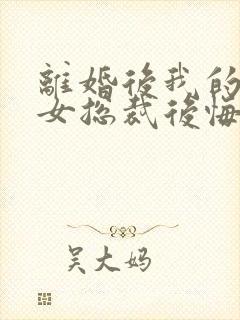 離婚後我的
女总裁後悔
吴大妈